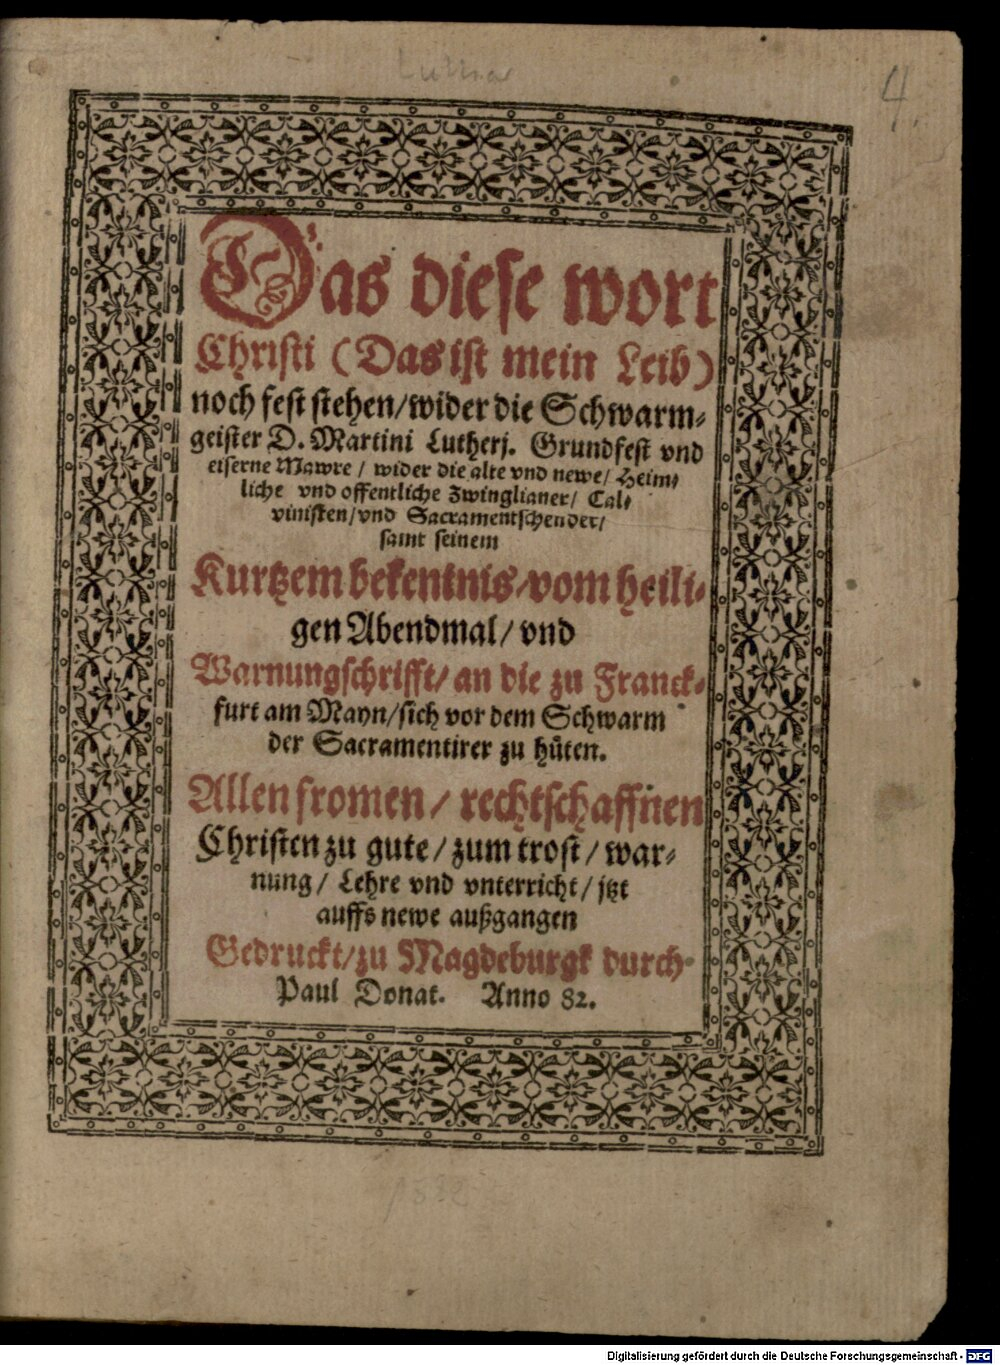 Luther
4.
Das diese wort
Christi (Das ist mein Leib)
noch fest stehen/wider die Schwarm⸗
geister D. Martini Lutherj. Grundfest vnd
eiserne Mawre / wider die alte vnd newe/ Heim⸗
liche vnd offentliche Zwinglianer/ Cal⸗
vinisten/vnd Sacramentschender/
samt seinem
Kurtzem bekentnis/vom heili⸗
gen Abendmal/ vnd
Warnungschrifft/ an die zu Franck⸗
furt am Mayn/sich vor dem Schwarm
der Sacramentirer zu hüten.
Allen fromen/ rechtschaffnen
Christen zu gute/ zum trost/ war⸗
nung/ Lehre vnd vnterricht/ jtzt
auffs newe außgangen
Gedruckt/zu Magdeburgk durch
Paul Donat. Anno 82.
1582
Digitalisierung gefördert durch die Deutsche Forschungsgemeinschaft - DFG